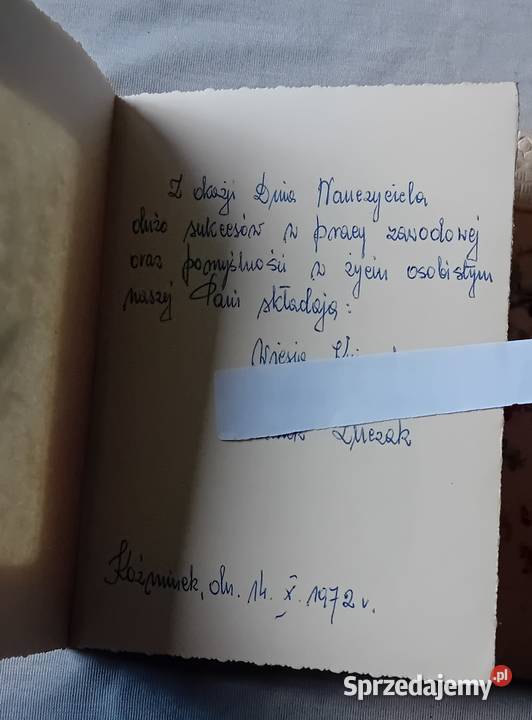 Z okazji Dnia Nauczyciela
dużo sukcesów w pracy zawodowej
oraz pomyślności w życiu osobistym
naszej Pani składają:
Wiesia
Koźminek, dn. 14. X. 1972 r.
Sprzedajemy.pl